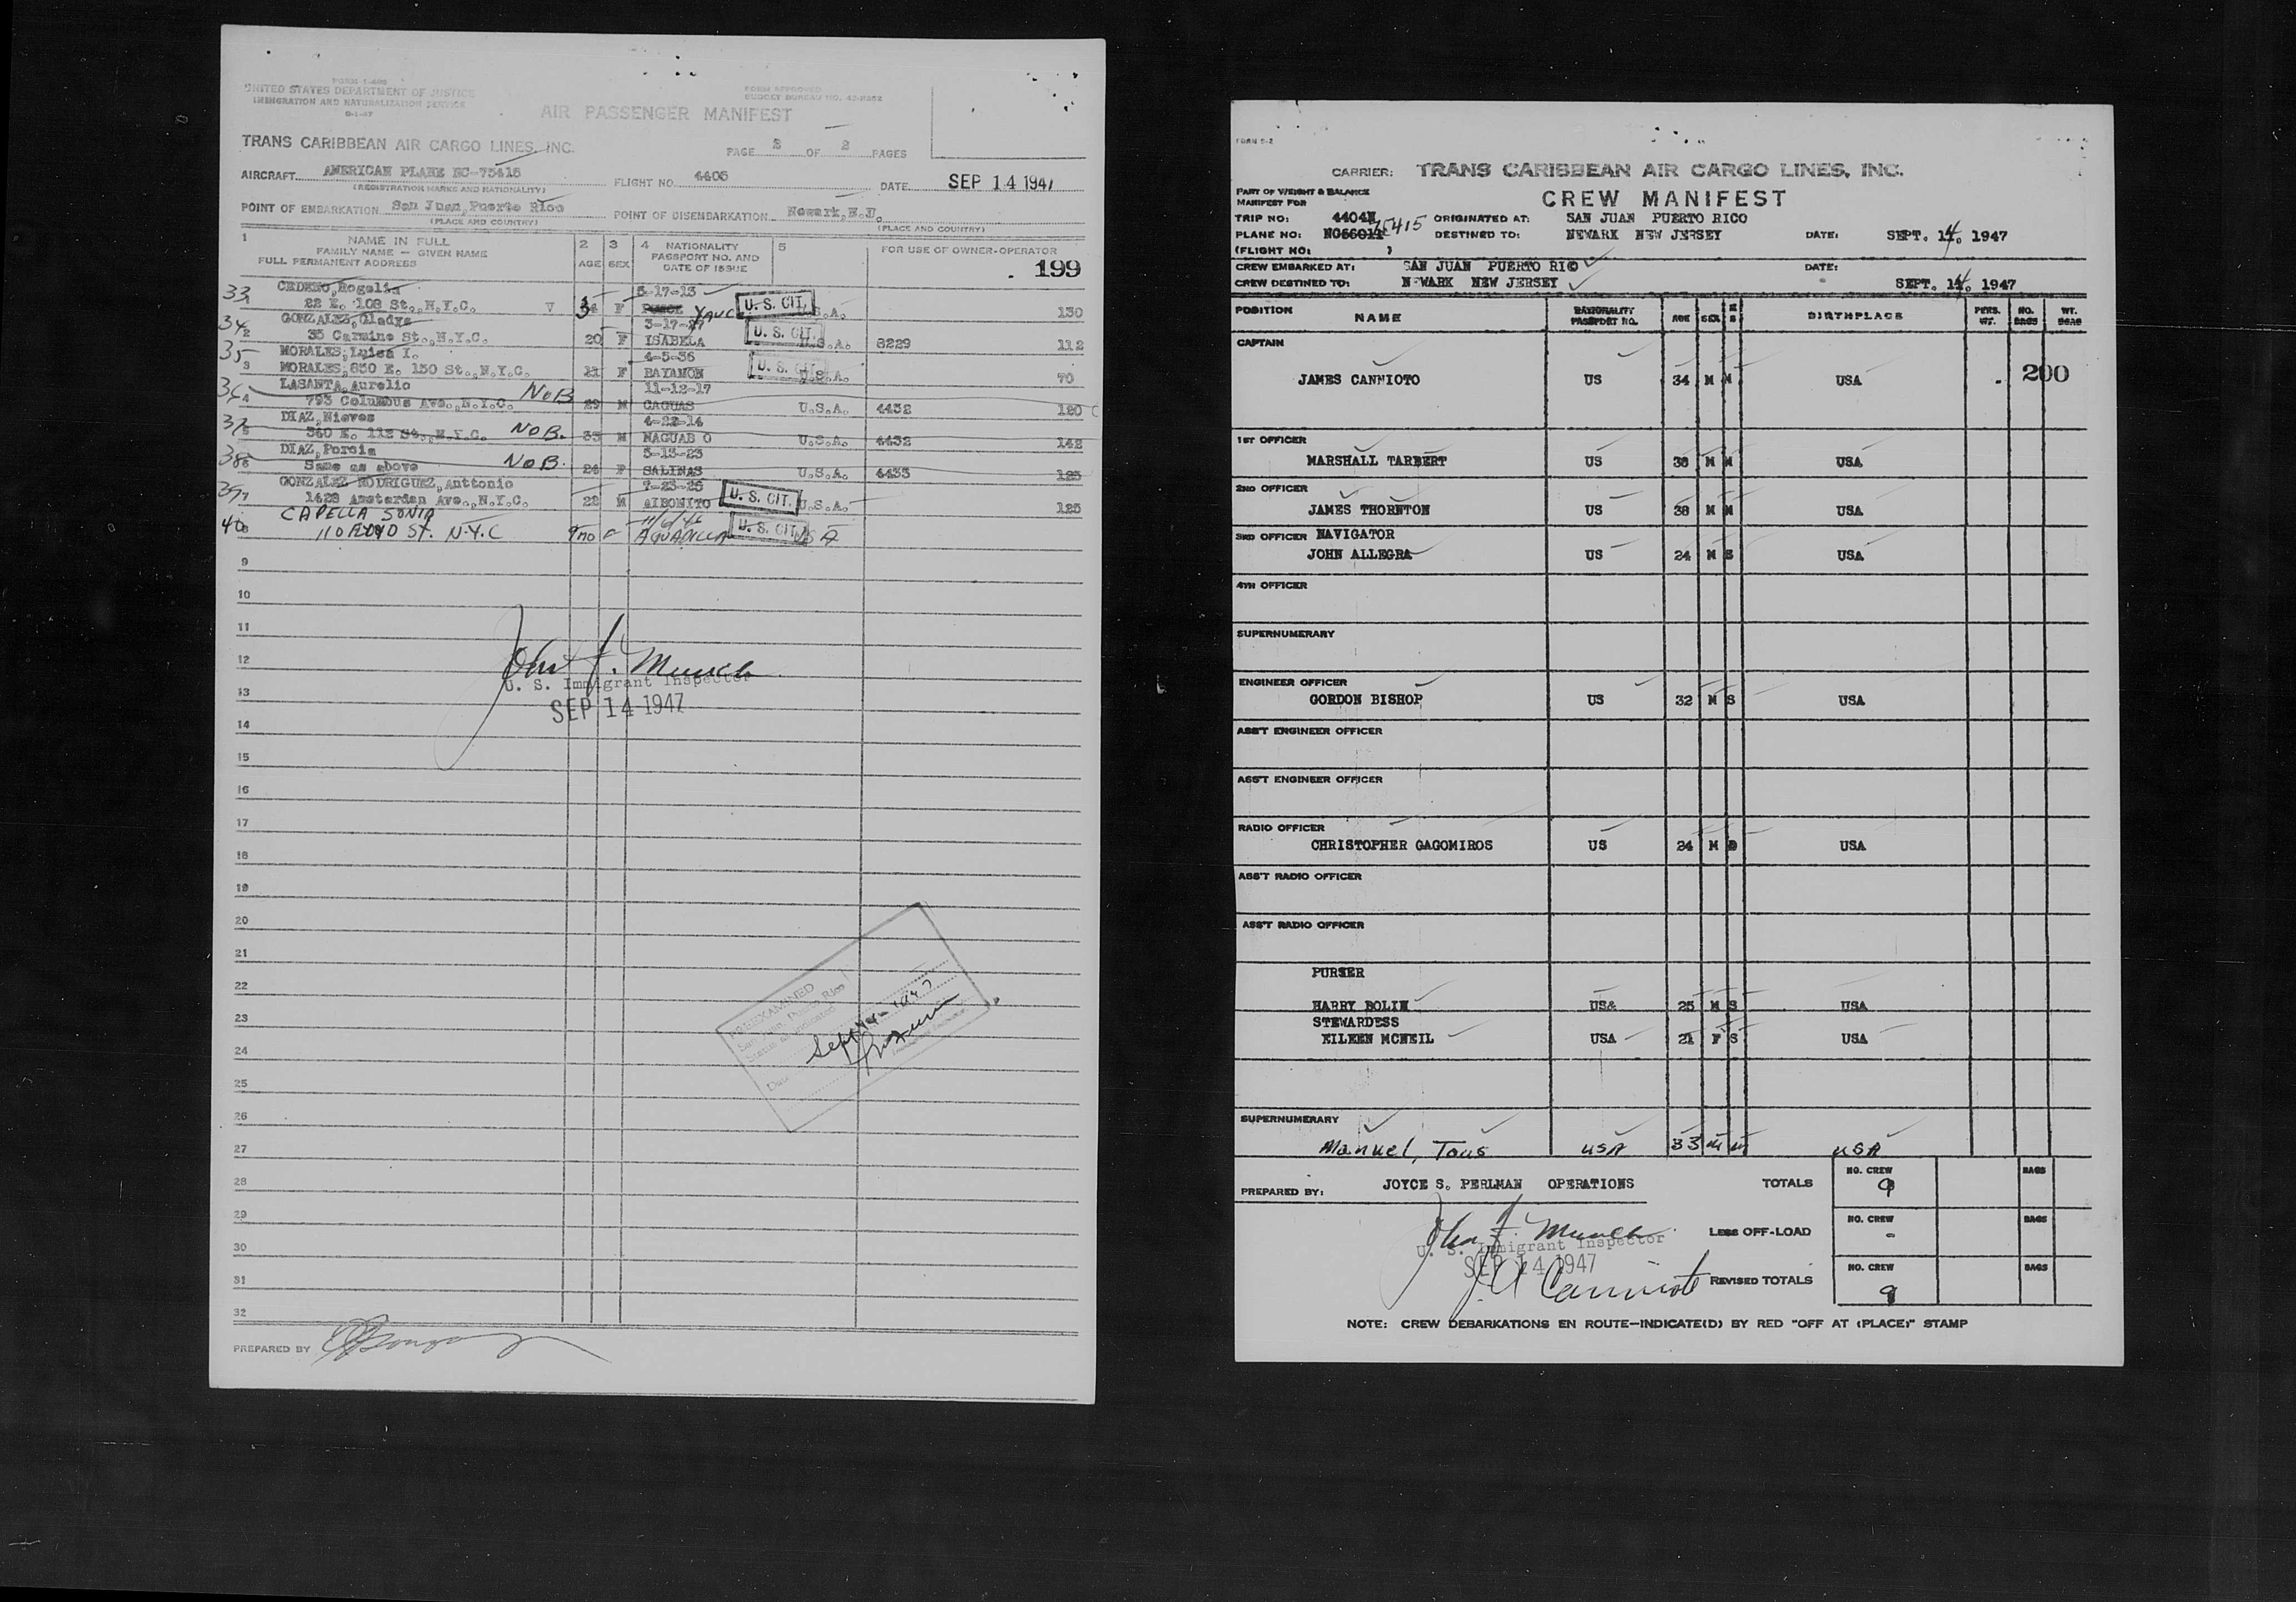 FORM I-466
UNITED STATES DEPARTMENT OF JUSTICE
IMMIGRATION AND NATURALIZATION SERVICE
FORM APPROVED
BUDGET BUREAU NO.
AIR PASSENGER MANIFEST
TRANS CARIBBEAN AIR CARGO LINES, INC.
PAGE 2 OF 2 PAGES
AIRCRAFT AMERICAN PLANE NC-75415 FLIGHT NO. 4405 DATE SEP 14 1947
(REGISTRATION MARKS AND NATIONALITY)
POINT OF EMBARKATION San Juan, Puerto Rico POINT OF DISEMBARKATION Newark, N.J.
(PLACE AND COUNTRY) (PLACE AND COUNTRY)
1 NAME IN FULL 2 3 4 NATIONALITY 5
FAMILY NAME — GIVEN NAME PASSPORT NO. AND FOR USE OF OWNER-OPERATOR
FULL PERMANENT ADDRESS AGE SEX DATE OF ISSUE
199
33 CEDENO, Rogelia 5-17-13
1 22 E. 108 St., N.Y.C. V 34 F YAUC U. S. CIT. U.S.A. 130
34 GONZALEZ, Gladys
2 35 Carmine St., N.Y.C. 20 F ISABELA U. S. CIT. U.S.A. 8229 112
35 MORALES, Luisa I. 4-5-36
3 MORALES, 850 E. 150 St., N.Y.C. 11 F BAYAMON U. S. CIT. U.S.A. 70
36 LASANTA, Aurelio NOB 11-12-17
4 793 Columbus Ave., N.Y.C. 29 M CAGUAS U.S.A. 4432 120
37 DIAZ, Nieves 4-22-14
5 340 E. 112 St., N.Y.C. NOB. 33 M NAGUABO U.S.A. 4432 142
38 DIAZ, Porcia 5-13-23
6 Same as above NOB. 24 F SALINAS U.S.A. 4433 125
39 GONZALEZ RODRIGUEZ, Anttonio 7-23-25
7 1428 Amsterdan Ave., N.Y.C. 22 M AIBONITO U. S. CIT. U.S.A. 125
40 CAPELLA SONIA
8 110 FLOYD St. N.Y.C 9mo F AGUADILLA U. S. CIT. USA
9
10
11
12
John F. Munch
U. S. Immigrant Inspector
13
SEP 14 1947
14
15
16
17
18
19
20
21
22
PREEXAMINED
San Juan, Puerto Rico
Date Sept 14 1947
23
24
25
26
27
28
29
30
31
32
PREPARED BY
CARRIER: TRANS CARIBBEAN AIR CARGO LINES, INC.
PART OF WEIGHT & BALANCE
MANIFEST FOR
CREW MANIFEST
TRIP NO: 4404N ORIGINATED AT: SAN JUAN PUERTO RICO
PLANE NO: NC66011 75415 DESTINED TO: NEWARK NEW JERSEY DATE: SEPT. 14, 1947
(FLIGHT NO: )
CREW EMBARKED AT: SAN JUAN PUERTO RICO DATE:
CREW DESTINED TO: NEWARK NEW JERSEY SEPT. 14, 1947
POSITION NAME NATIONALITY PASSPORT NO. AGE SEX M S BIRTHPLACE PERS. WT. NO. BAGS WT. BAGS
CAPTAIN
200
JAMES CANNIOTO US 34 M M USA
1ST OFFICER
MARSHALL TARBERT US 30 M M USA
2ND OFFICER
JAMES THORNTON US 38 M M USA
3RD OFFICER NAVIGATOR
JOHN ALLEGRA US 24 M S USA
4TH OFFICER
SUPERNUMERARY
ENGINEER OFFICER
GORDON BISHOP US 32 M S USA
ASS'T ENGINEER OFFICER
ASS'T ENGINEER OFFICER
RADIO OFFICER
CHRISTOPHER GAGOMIROS US 24 M USA
ASS'T RADIO OFFICER
ASS'T RADIO OFFICER
PURSER
HARRY BOLIN USA 25 M S USA
STEWARDESS
EILEEN MCNEIL USA 21 F S USA
SUPERNUMERARY
Manuel, Tous USA 33 M M USA
PREPARED BY: JOYCE S. PERLMAN OPERATIONS TOTALS NO. CREW 9 BAGS
John F. Munch
U. S. Immigrant Inspector
LESS OFF-LOAD NO. CREW - BAGS
SEP 14 1947
J A Cannioto
REVISED TOTALS NO. CREW 9 BAGS
NOTE: CREW DEBARKATIONS EN ROUTE—INDICATE(D) BY RED "OFF AT (PLACE)" STAMP